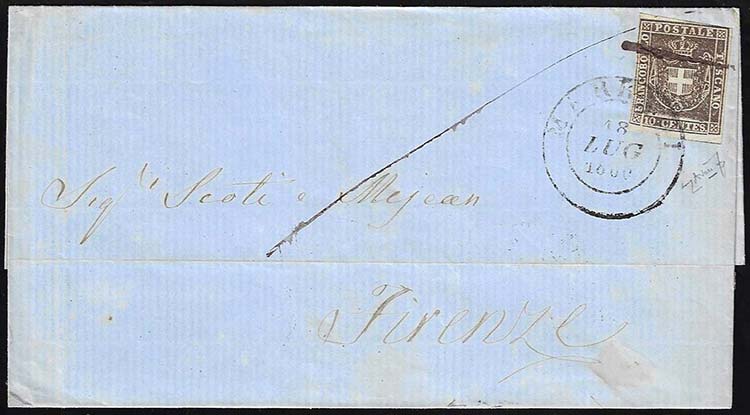 FRANCOBOLLO POSTALE TOSCANO
10 CENTES
18
LUG
1860
Sigri Scoti e Mejean
Firenze